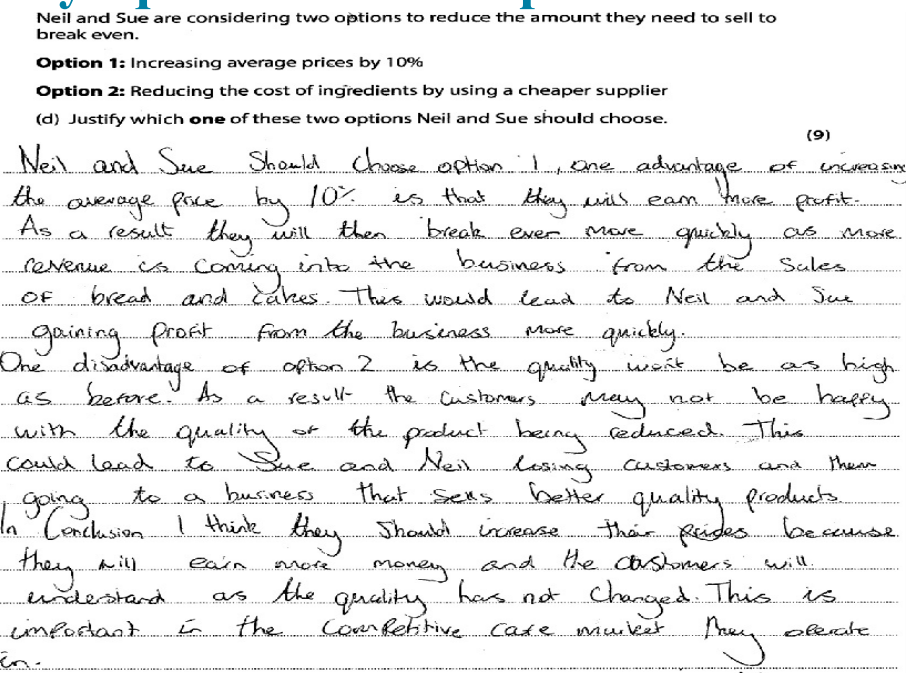 Neil and Sue are considering two options to reduce the amount they need to sell to
break even.
Option 1: Increasing average prices by 10%
Option 2: Reducing the cost of ingredients by using a cheaper supplier
(d) Justify which one of these two options Neil and Sue should choose.
(9)
Neil and Sue Should Choose option 1, one advantage of increasing
the average price by 10% is that they will earn more profit.
As a result they will then break even more quickly as more
revenue is coming into the business from the Sales
OF bread and cakes. This would lead to Neil and Sue
gaining profit from the business more quickly.
One disadvantage of option 2 is the quality won't be as high
as before. As a result the customers may not be happy
with the quality of the product being reduced. This
could lead to Sue and Neil losing customers and them
going to a business that sells better quality products
In Conclusion I think they should increase their prices because
they will earn more money and the customers will
understand as the quality has not changed. This is
important in the competitive cafe market they operate
in.